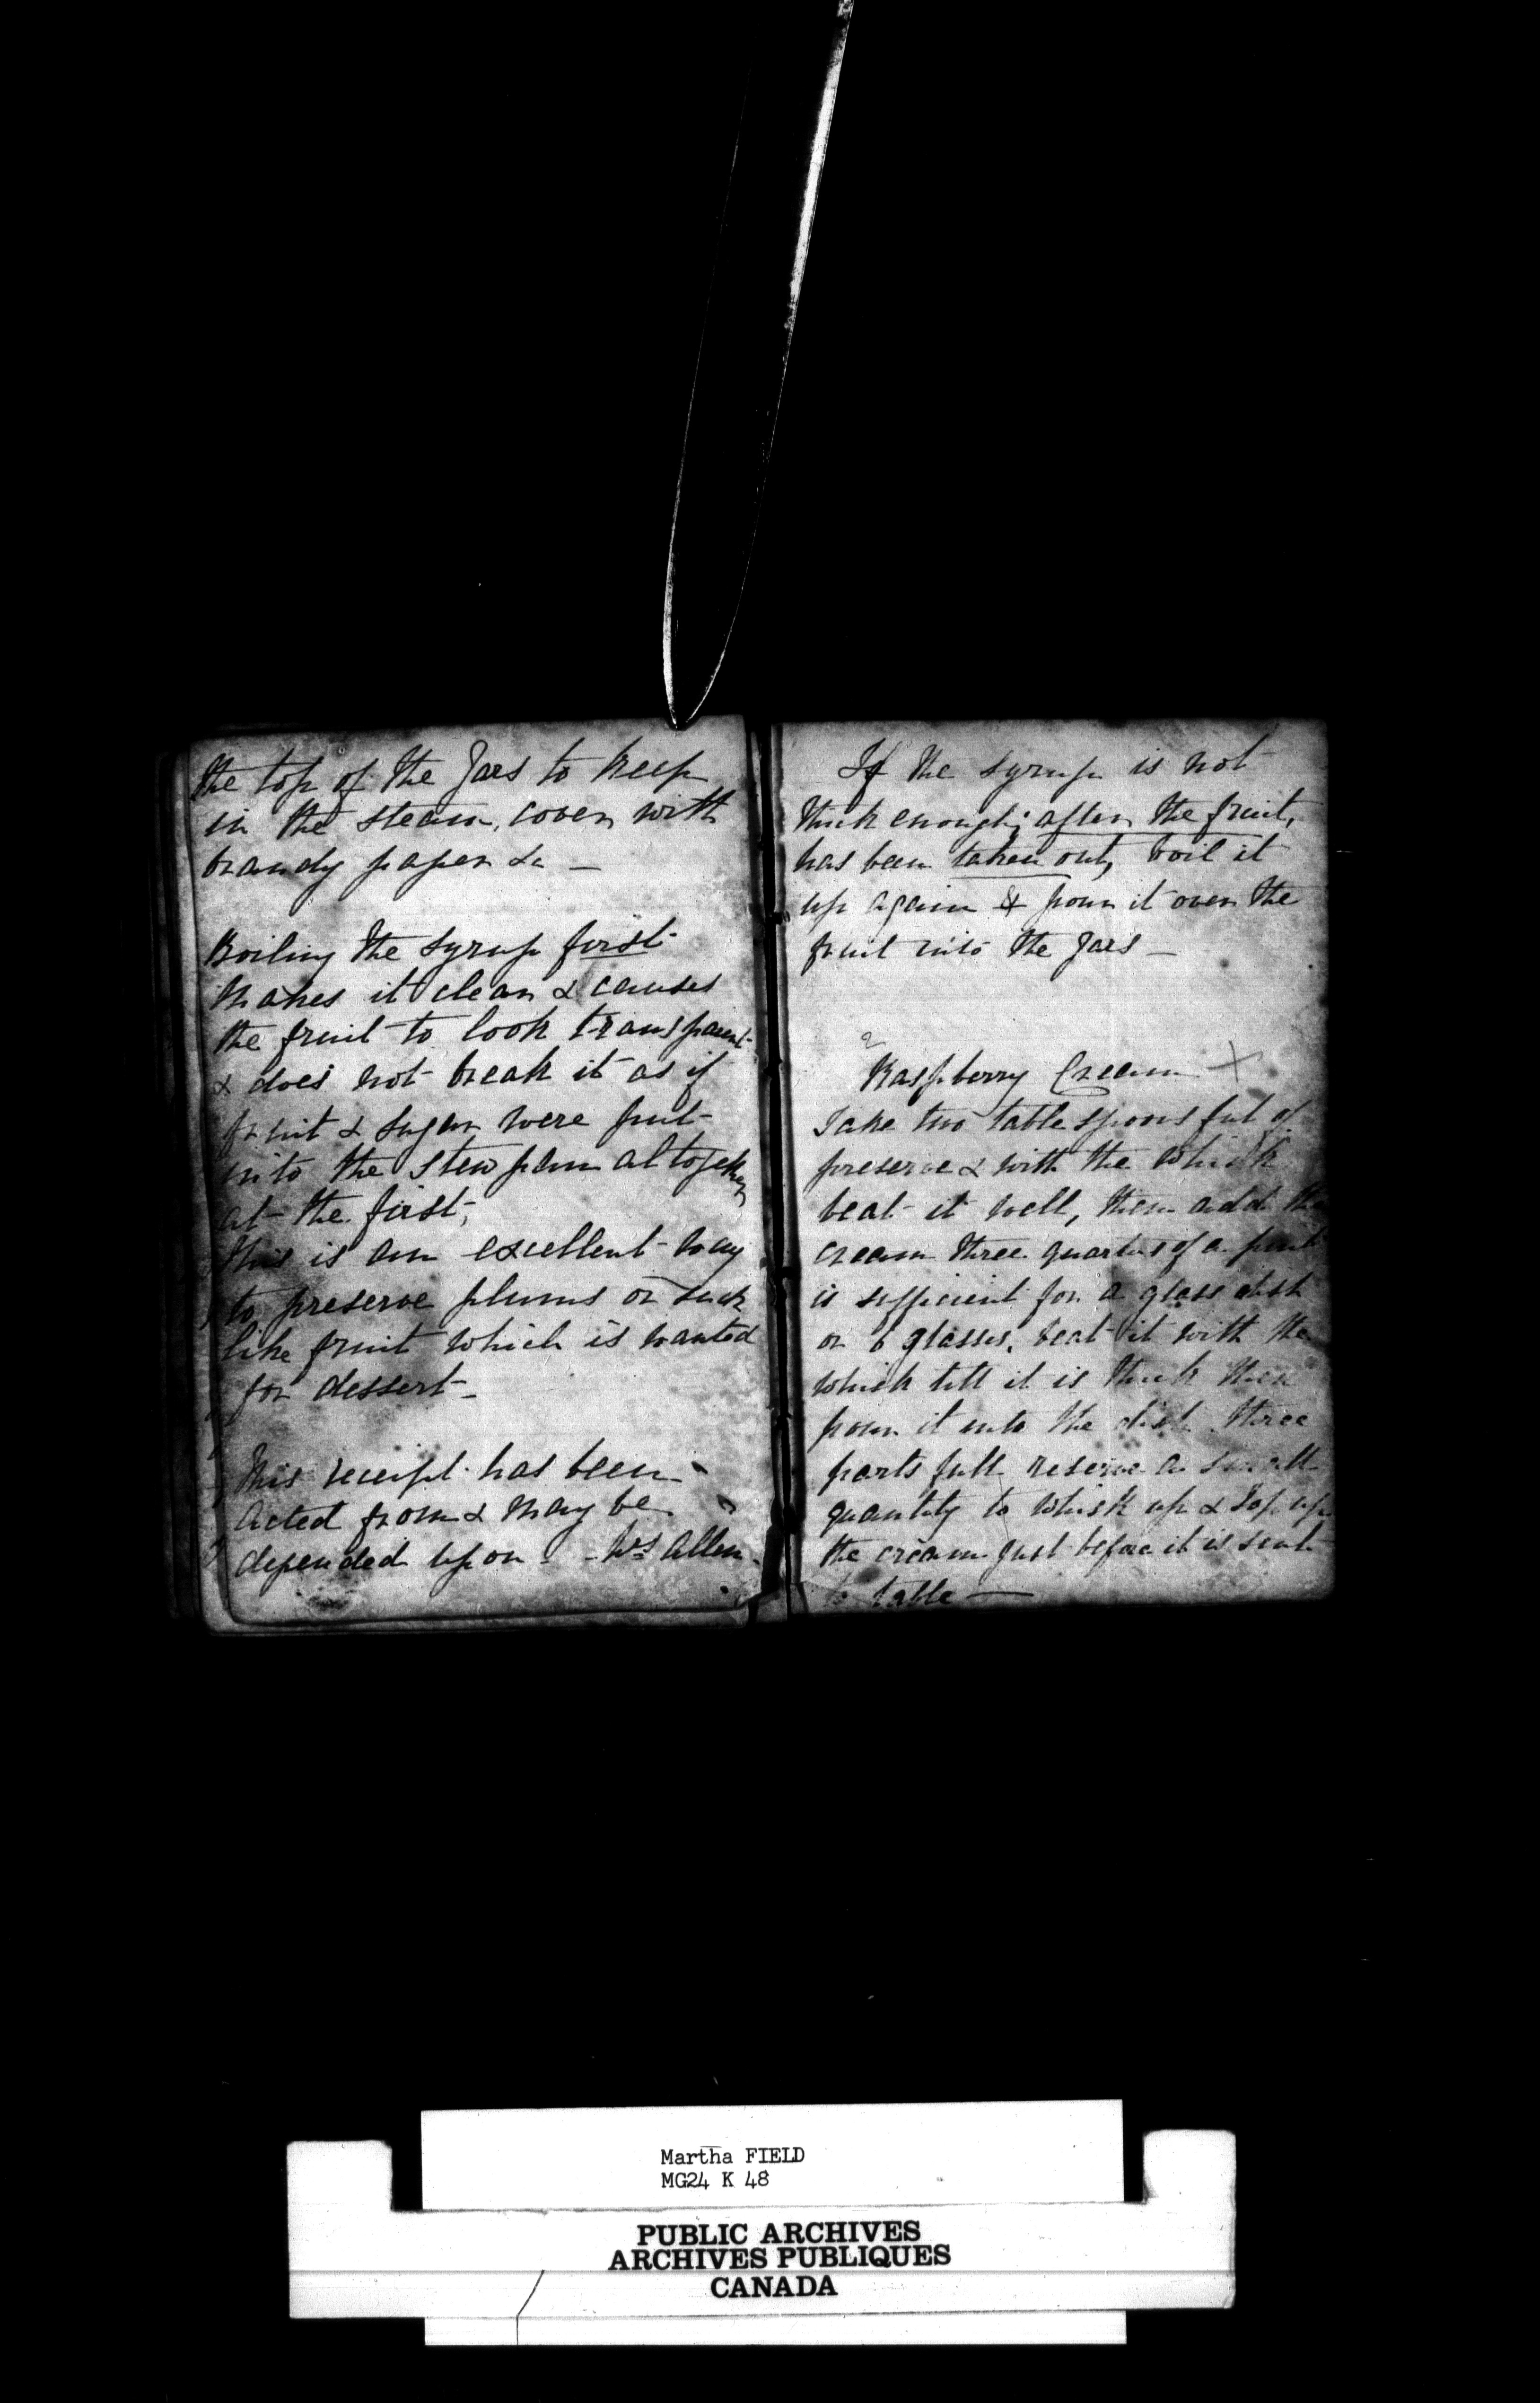 the top of the Jars to keep
in the steam, cover with
brandy paper &c —
Boiling the syrup first
makes it clear & causes
the fruit to look transparent
& does not break it as if
fruit & sugar were put
into the stew pan altogether
at the first,
This is an excellent way
to preserve plums or such
like fruit which is wanted
for dessert —
This receipt has been
acted from & may be
depended upon — Allen
If the syrup is not
thick enough; after the fruit,
has been taken out, boil it
up again & pour it over the
fruit into the Jars —
2
Raspberry Cream +
Take two table spoons ful of
preserve & with the whisk
beat it well, then add the
cream three quarters of a pint
is sufficient for a glass dish
or 6 glasses, beat it with the
whisk till it is thick then
pour it into the dish three
parts full reserve a small
quantity to whisk up & top up
the cream just before it is sent
to table —
Martha FIELD
MG24 K 48
PUBLIC ARCHIVES
ARCHIVES PUBLIQUES
CANADA